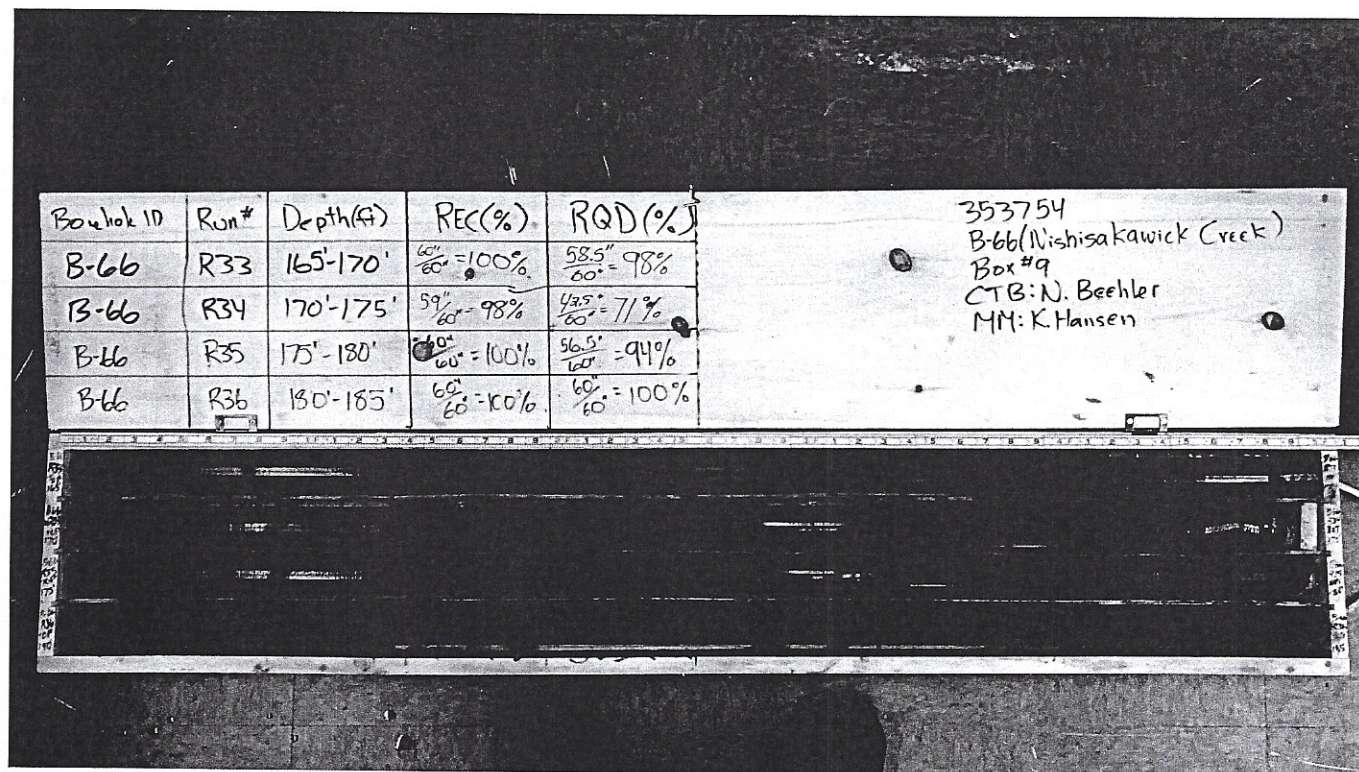 Borehole ID Run# Depth(ft) REC(%) RQD(%)
B-66 R33 165'-170' 60"/60" = 100% 58.5"/60" = 98%
B-66 R34 170'-175' 59"/60" = 98% 42.5"/60" = 71%
B-66 R35 175'-180' 60"/60" = 100% 56.5"/60" = 94%
B-66 R36 180'-185' 60"/60" = 100% 60"/60" = 100%
353754
B-66(Nishisakawick Creek)
Box #9
CTB: N. Beehler
MM: K. Hansen